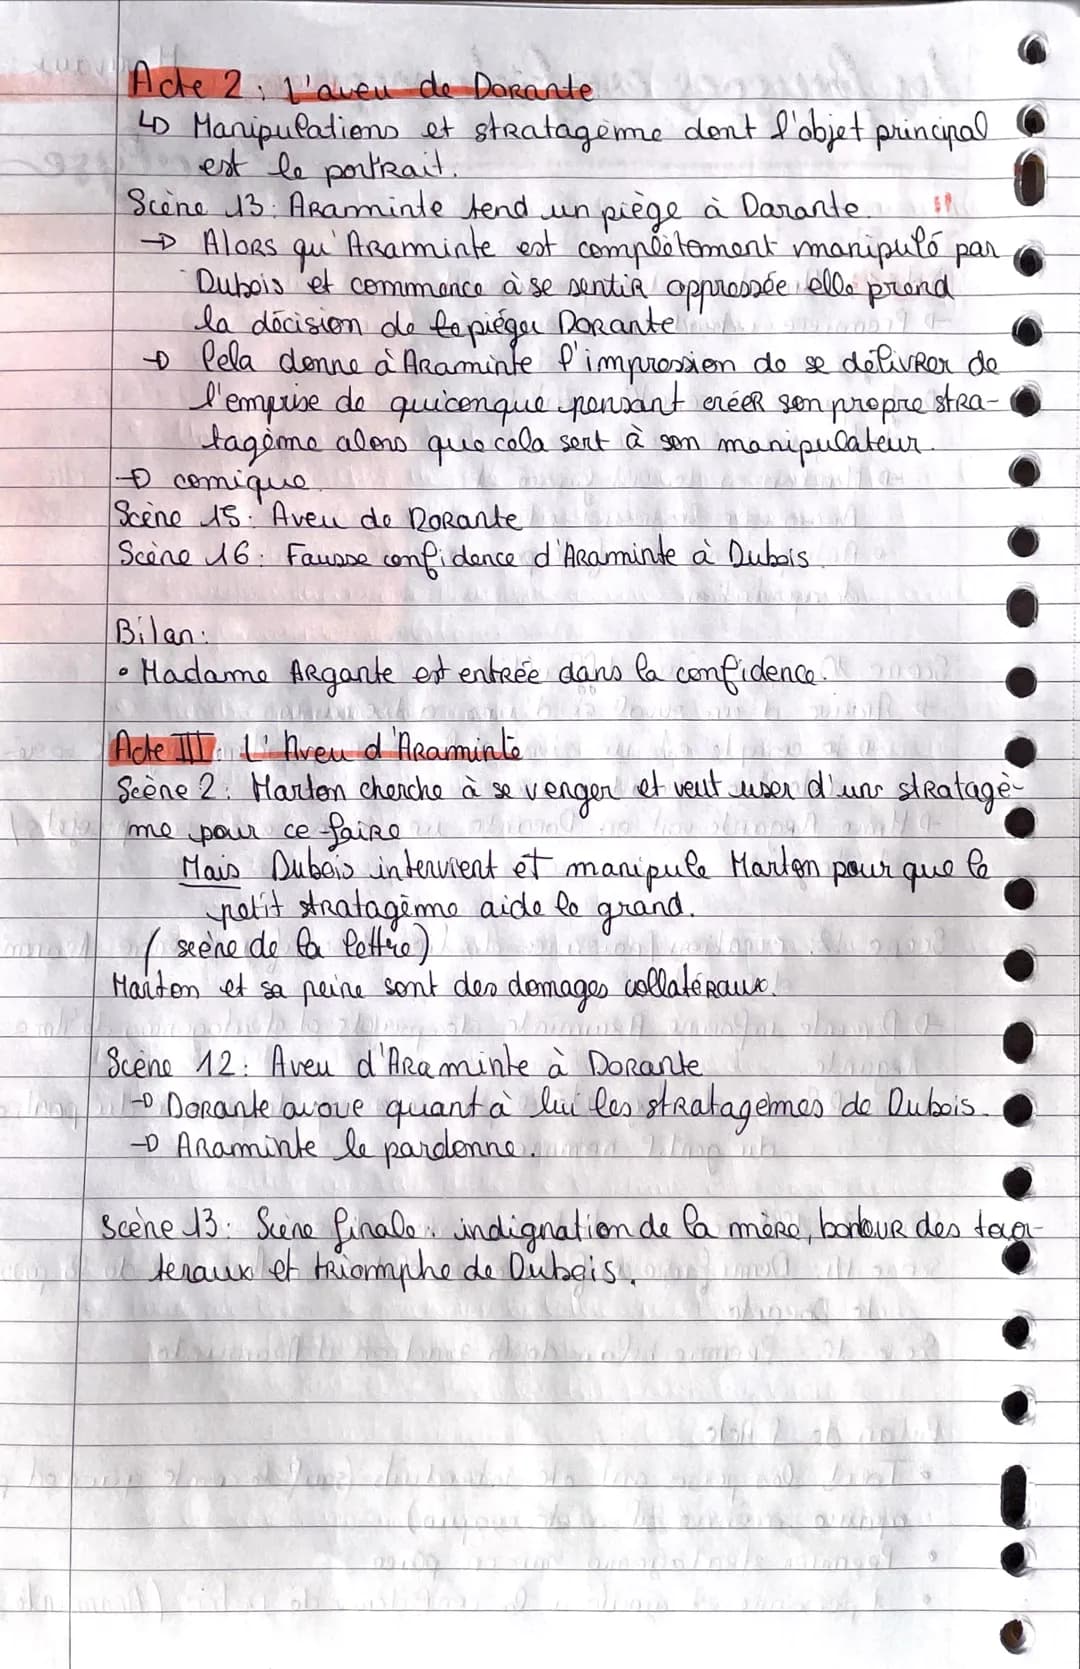 Acte 2 : L'aveu de Dorante
↳ Manipulations et stratagème dont l'objet principal
est le portrait.
Scène 13 : Araminte tend un piège à Darante.
→ Alors qu'Araminte est complètement manipulé par
Dubois et commence à se sentir oppressée, elle prend
la décision de piéger Dorante
→ Cela donne à Araminte l'impression de se délivrer de
l'emprise de quiconque pensant créer son propre stra-
tagème alors que cela sert à son manipulateur.
→ comique.
Scène 15 : Aveu de Dorante
Scène 16 : Fausse confidence d'Araminte à Dubois
Bilan :
• Madame Argante est entrée dans la confidence.
Acte III : L'Aveu d'Araminte
Scène 2 : Marton cherche à se venger et veut user d'uns stratagè-
me pour ce faire
Mais Dubois intervient et manipule Marton pour que le
petit stratagème aide le grand.
( scène de la lettre)
Marton et sa peine sont des domages collatéraux.
Scène 12 : Aveu d'Araminte à Dorante
→ Dorante avoue quant à lui les stratagemes de Dubois.
→ Araminte le pardonne.
Scène 13 : Scène finale : indignation de la mère, des
et triomphe de Dubois.